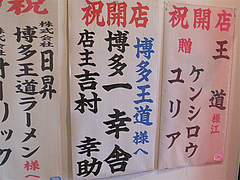 祝開店
王道様江
贈
ケンシロウ
ユリア
祝開店
博多王道様へ
博多一幸舎
店主吉村幸助
祝
様へ
日昇
博多王道ラーメン
株式会社